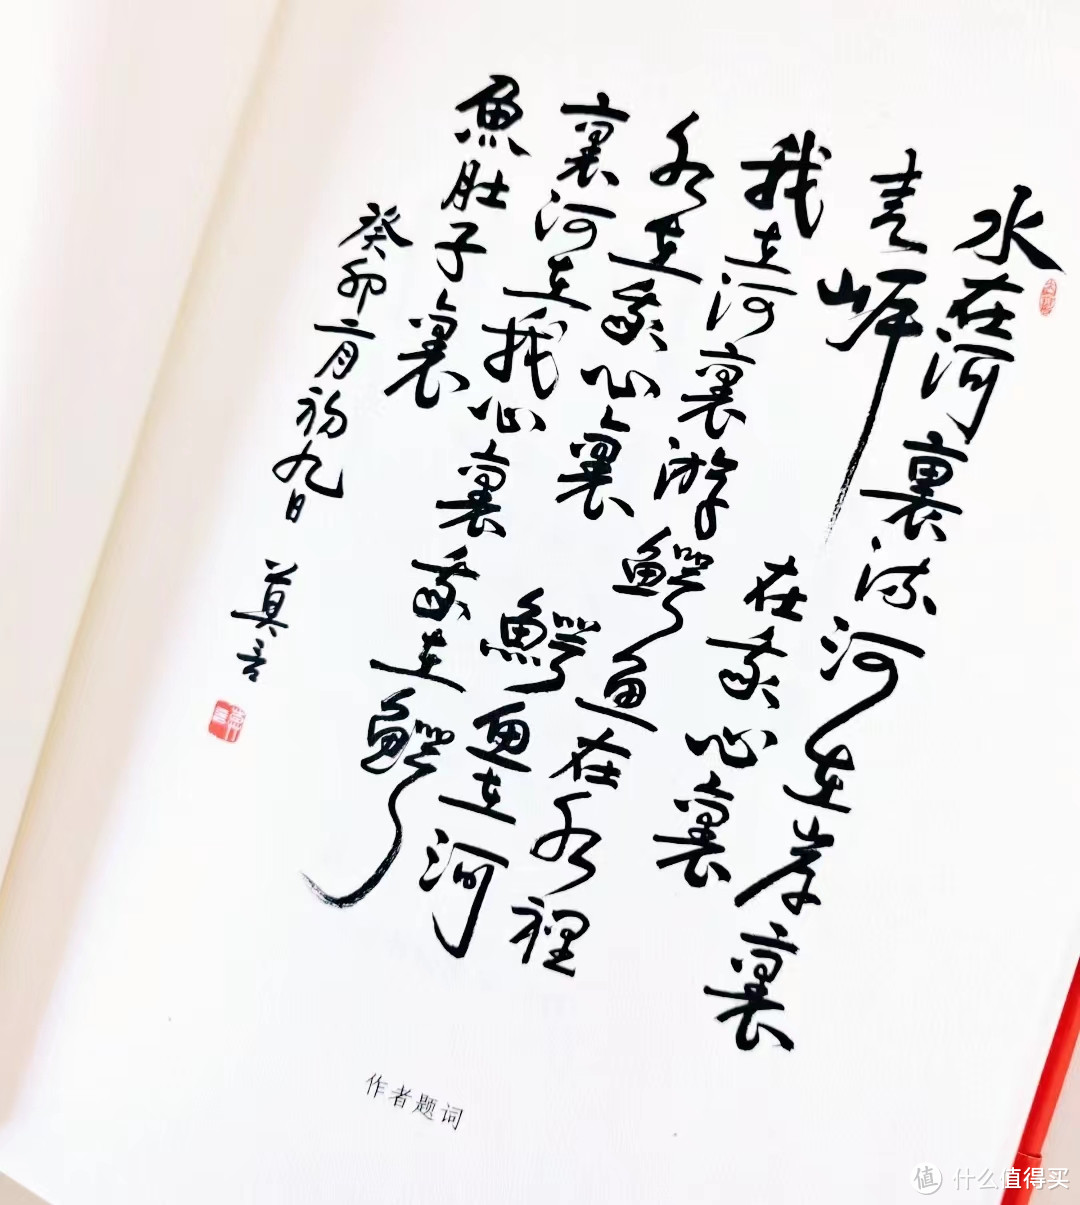 水在河裏流河在岸裏
走岸在我心裏
我在河裏游鰐魚在水裡
水在我心裏鰐魚在河
裏河在我心裏我在鰐
魚肚子裏
癸卯二月初九日 莫言
作者题词
值 什么值得买